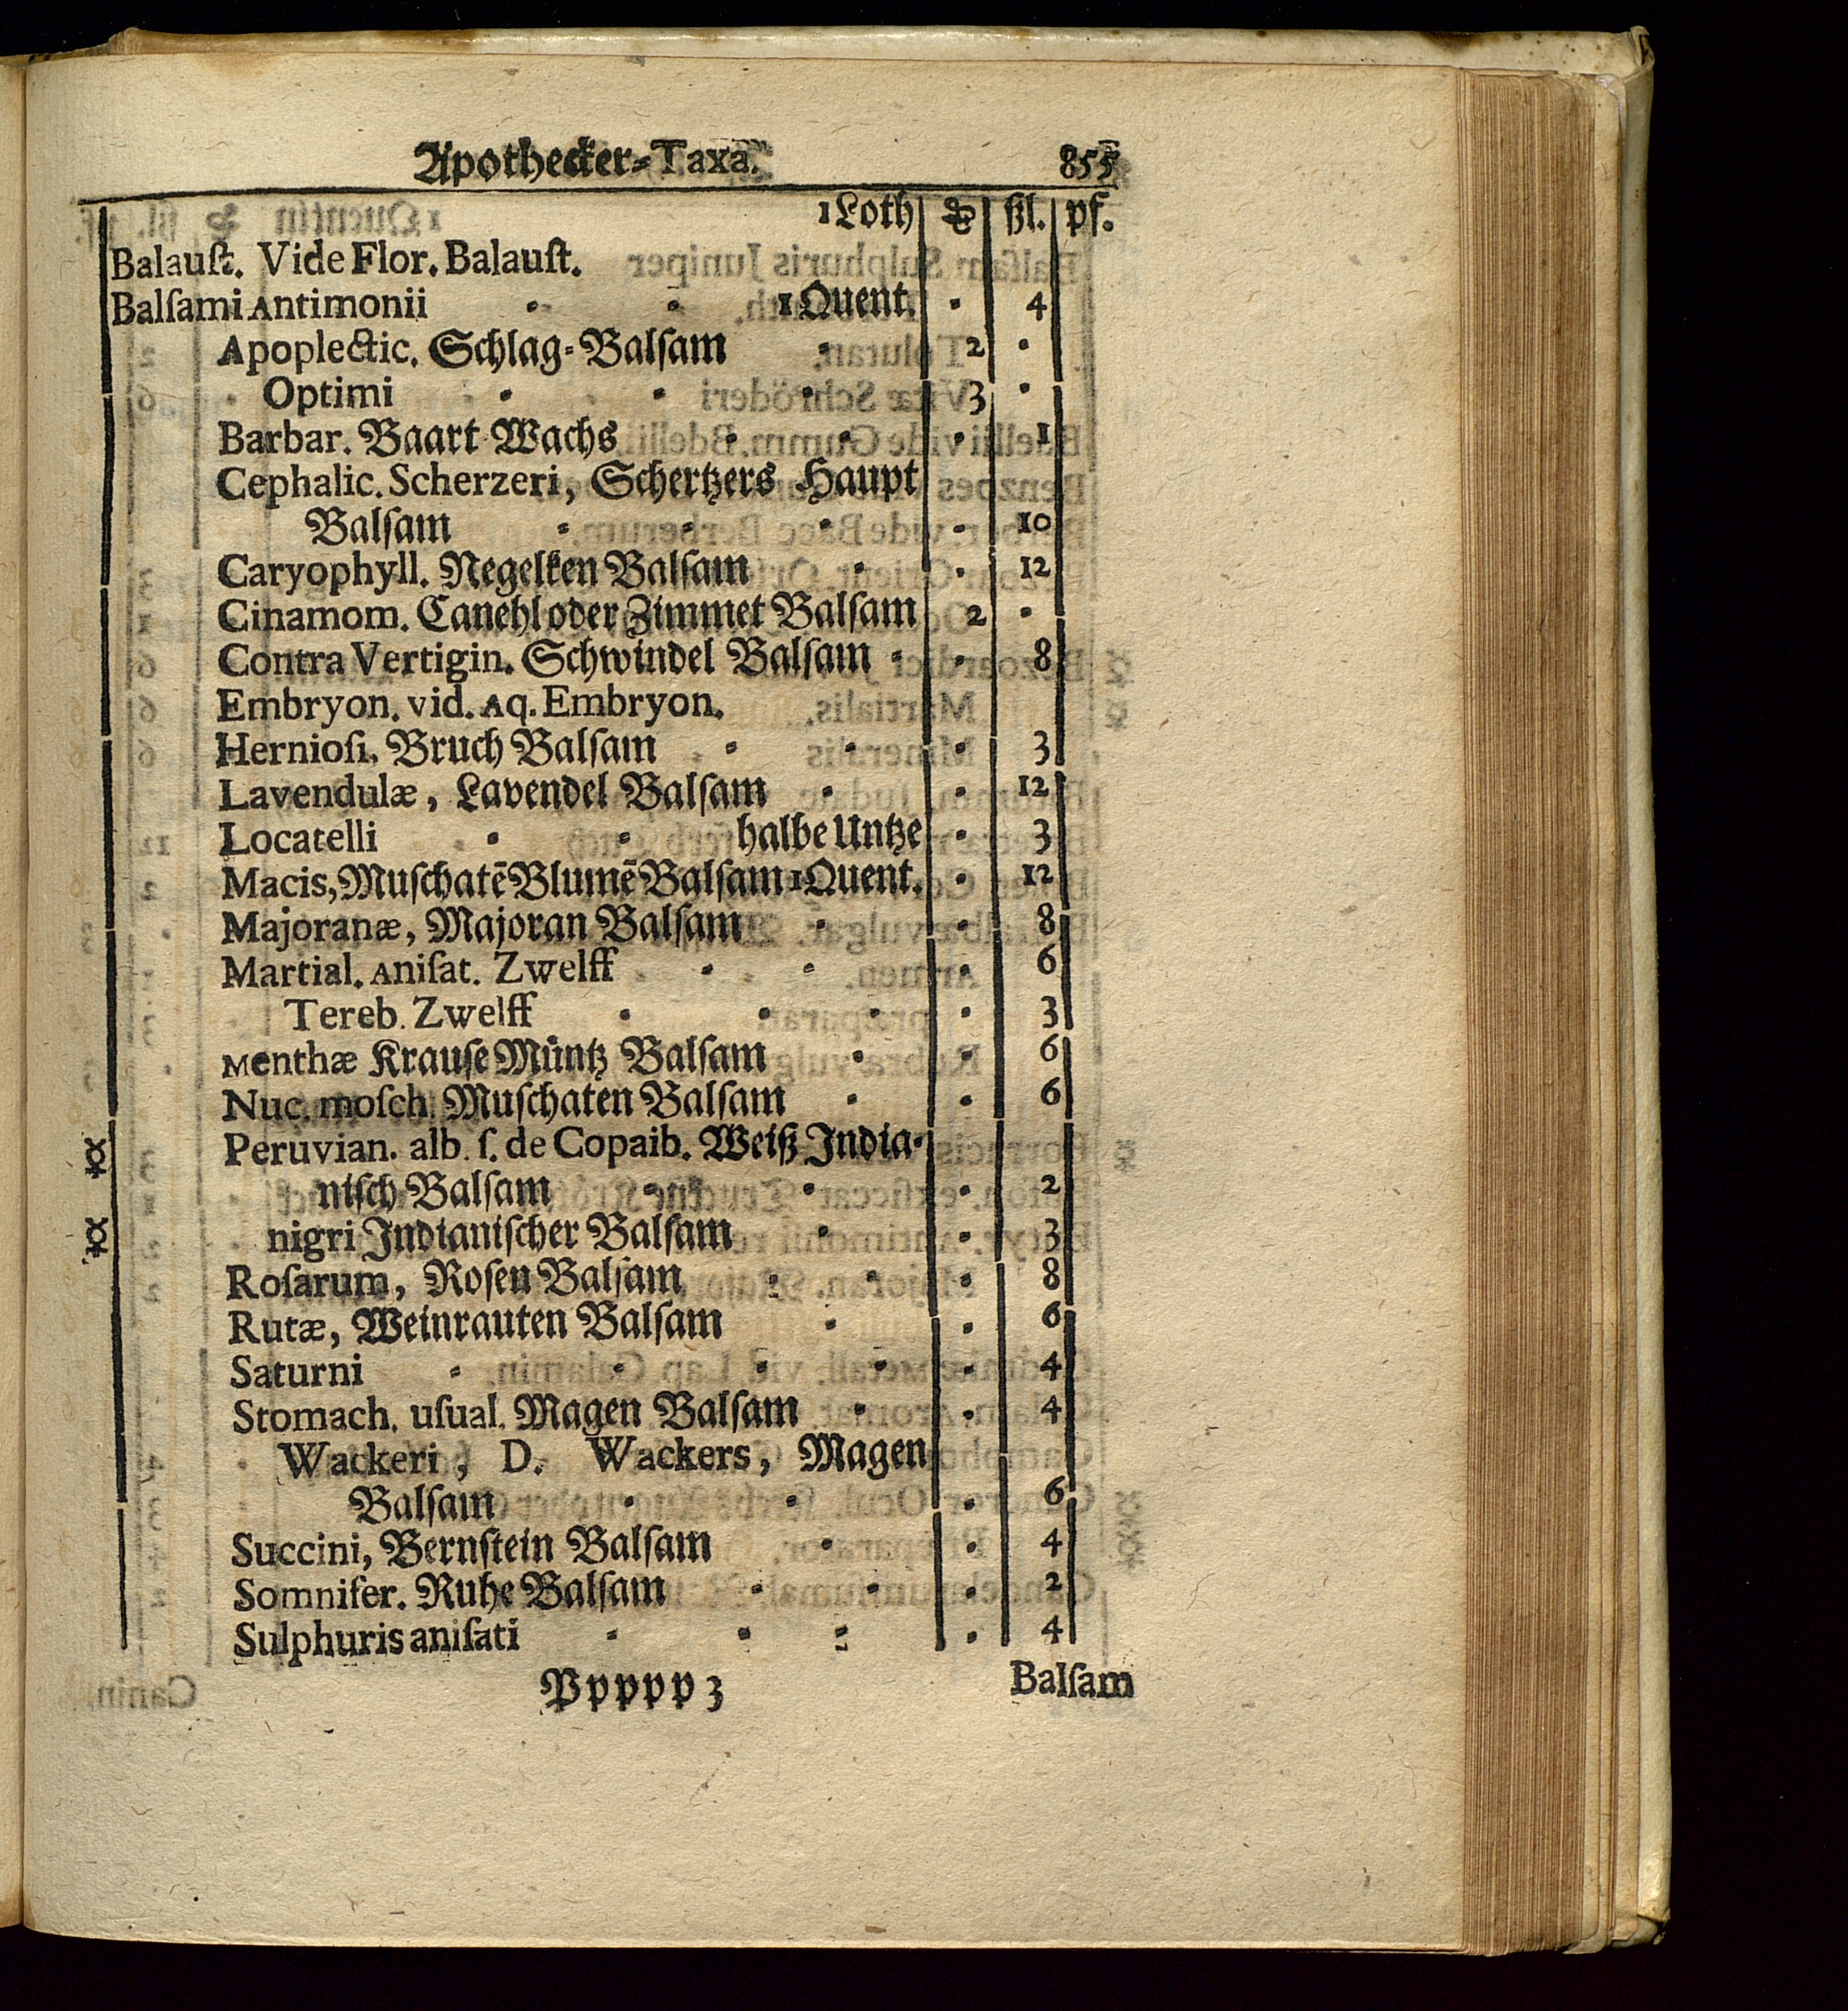 Apothecker-Taxa. 855
1 Loth ßl. pf.
Balauſt. Vide Flor. Balauſt.
Balſami Antimonii 1 Quent. 4
Apoplectic. Schlag-Balſam 2
Optimi 3
Barbar. Baart Wachs 1
Cephalic. Scherzeri, Schertzers Haupt
Balſam 10
Caryophyll. Negelken Balſam 12
Cinamom. Canehl oder Zimmet Balſam 2
Contra Vertigin. Schwindel Balſam 8
Embryon. vid. Aq. Embryon.
Hernioſi. Bruch Balſam 3
Lavendulæ, Lavendel Balſam 12
Locatelli halbe Untze 3
Macis, Muſchatē Blumē Balſam 1 Quent. 12
Majoranæ, Majoran Balſam 8
Martial. Aniſat. Zwelff 6
Tereb. Zwelff 3
Menthæ Krauſe Müntz Balſam 6
Nuc. moſch. Muſchaten Balſam 6
Peruvian. alb. ſ. de Copaib. Weiß India-
niſch Balſam 2
nigri Indianiſcher Balſam 3
Roſarum, Roſen Balſam 8
Rutæ, Weinrauten Balſam 6
Saturni 4
Stomach. uſual. Magen Balſam 4
Wackeri, D. Wackers, Magen
Balſam 6
Succini, Bernſtein Balſam 4
Somnifer. Ruhe Balſam 2
Sulphuris aniſati 4
Ppppp 3 Balſam